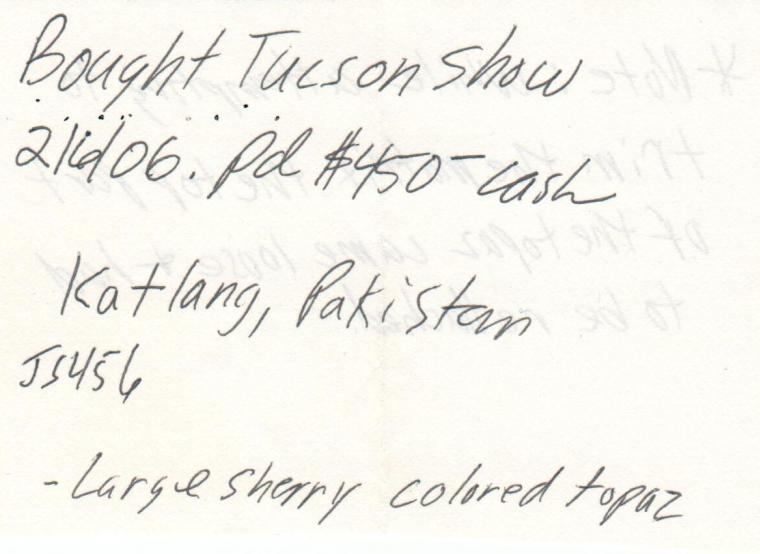 Bought Tucson Show
2/6/06. Pd $450- cash
Katlang, Pakistan
JS456
- Large sherry colored topaz